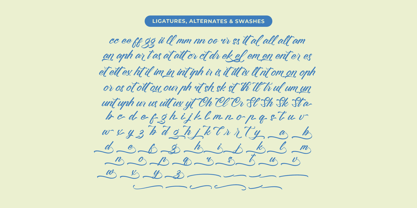 LIGATURES, ALTERNATES & SWASHES
cc ee ff gg ii ll mm nn oo rr ss tt al all alt am
an aph ar as at att atter ct dr ek el em en ent er es
et ett ex ht il im in int iph ir is it itt iv ll nt om on oph
or os ot ott ou our ph rt sh sk st th tt ti ul um un
unt uph ur us utt ux yt Ch Cl Cr Sl Sh Sk St a
b c d e f g h i j k l m n o p q r s t u v
w x y z d g h j k l t y a b
d e f g h i j k l m
n o p q r s t u v
w x y z